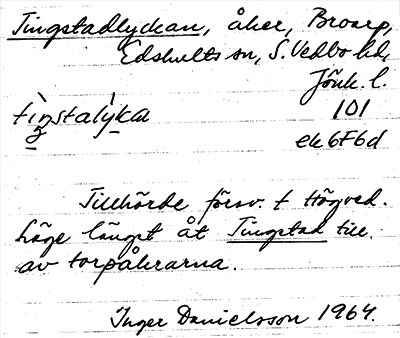 Tingstadlyckan, åker, Broarp,
Edshults sn, S. Vedbo hd,
Jönk. l.
tìŋstalỳka 101
ek 6F6d
Tillhörde förr. t Högved.
Låge längst åt Tingstad till.
av torpåkrarna.
Inger Danielsson 1964.